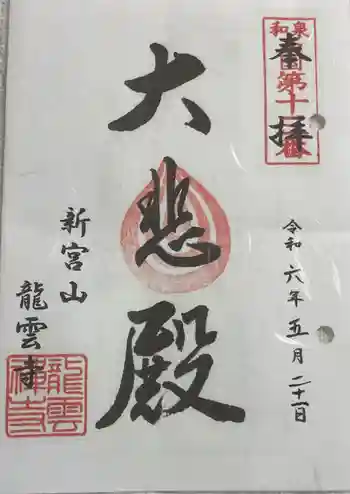 和泉
第十
奉拝
令和六年五月二十一日
大悲殿
新宮山
龍雲寺
龍雲
禅寺